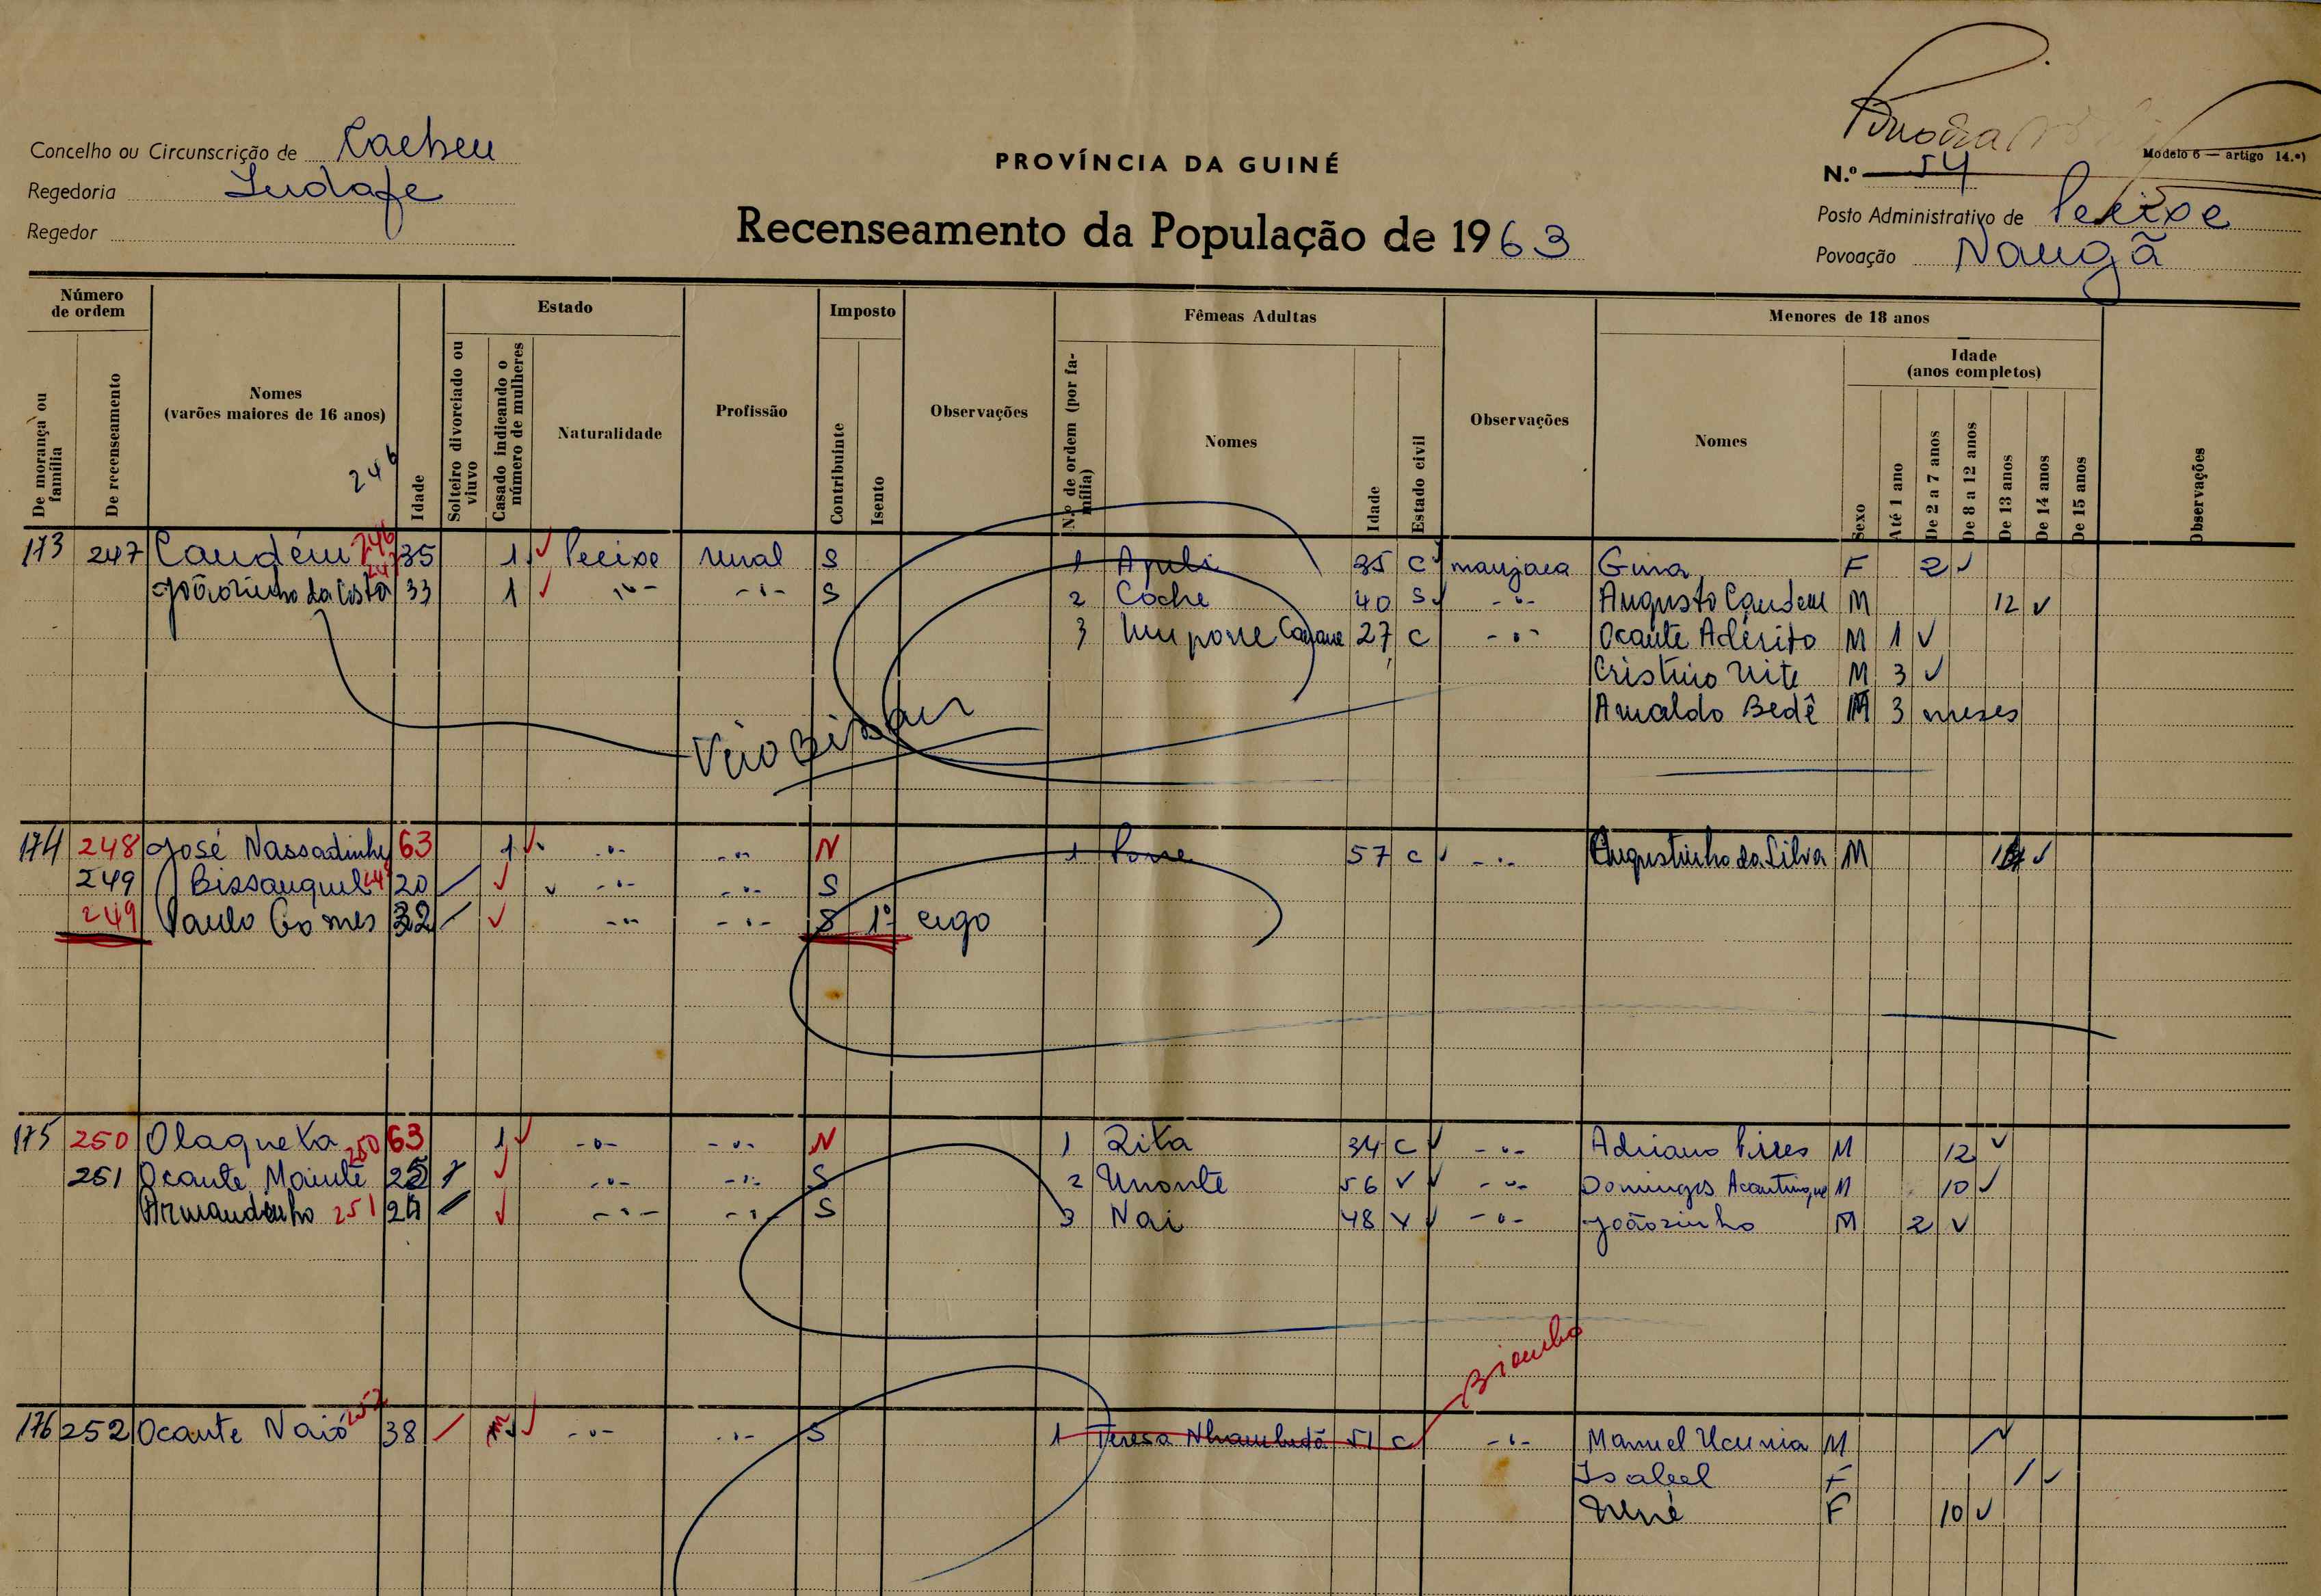 Concelho ou Circunscrição de Cacheu
Regedoria
Regedor
PROVÍNCIA DA GUINÉ
Recenseamento da População de 1963
Modelo 6 — artigo 14.º)
N.º 54
Posto Administrativo de Pecixe
Povoação Naugã
Número de ordem
De morança ou família
De recenseamento
Nomes (varões maiores de 16 anos)
246
Idade
Estado
Solteiro divorciado ou viuvo
Casado indicando o número de mulheres
Naturalidade
Profissão
Imposto
Contribuinte
Isento
Observações
Fêmeas Adultas
N.º de ordem (por família)
Nomes
Idade
Estado civil
Observações
Menores de 18 anos
Nomes
Sexo
Idade (anos completos)
Até 1 ano
De 2 a 7 anos
De 8 a 12 anos
De 13 anos
De 14 anos
De 15 anos
Observações
173 247 Caudém 246 35 1 Pecixe rural S 1 35 C manjaca Gina F 2
Joãozinho da Costa 33 1 -"- -"- S 2 Coche 40 S -"- Augusto Caudem M 12
3 27 C -"- Ocante Adérito M 1
M 3
Arnaldo Bedê M 3 meses
Veio Bissau
174 248 José 63 1 -"- -"- N 1 57 C -"- Augustinho da Silva M
249 20 -"- -"- S
249 Paulo Gomes 32 -"- -"- S 1º
175 250 Olaqueta 250 63 1 -"- -"- N 1 Zita 34 C -"- Adriano Pires M 12
251 Ocante Mainté 25 -"- -"- S 2 Unonte 56 V -"- Domingos M 10
Armandinho 251 24 -"- -"- S 3 Nai 48 V -"- Joãozinho M 2
Biombo
176 252 Ocante Naió 252 38 -"- -"- S 1 Teresa 51 C -"- Manuel M
Isabel F
F 10